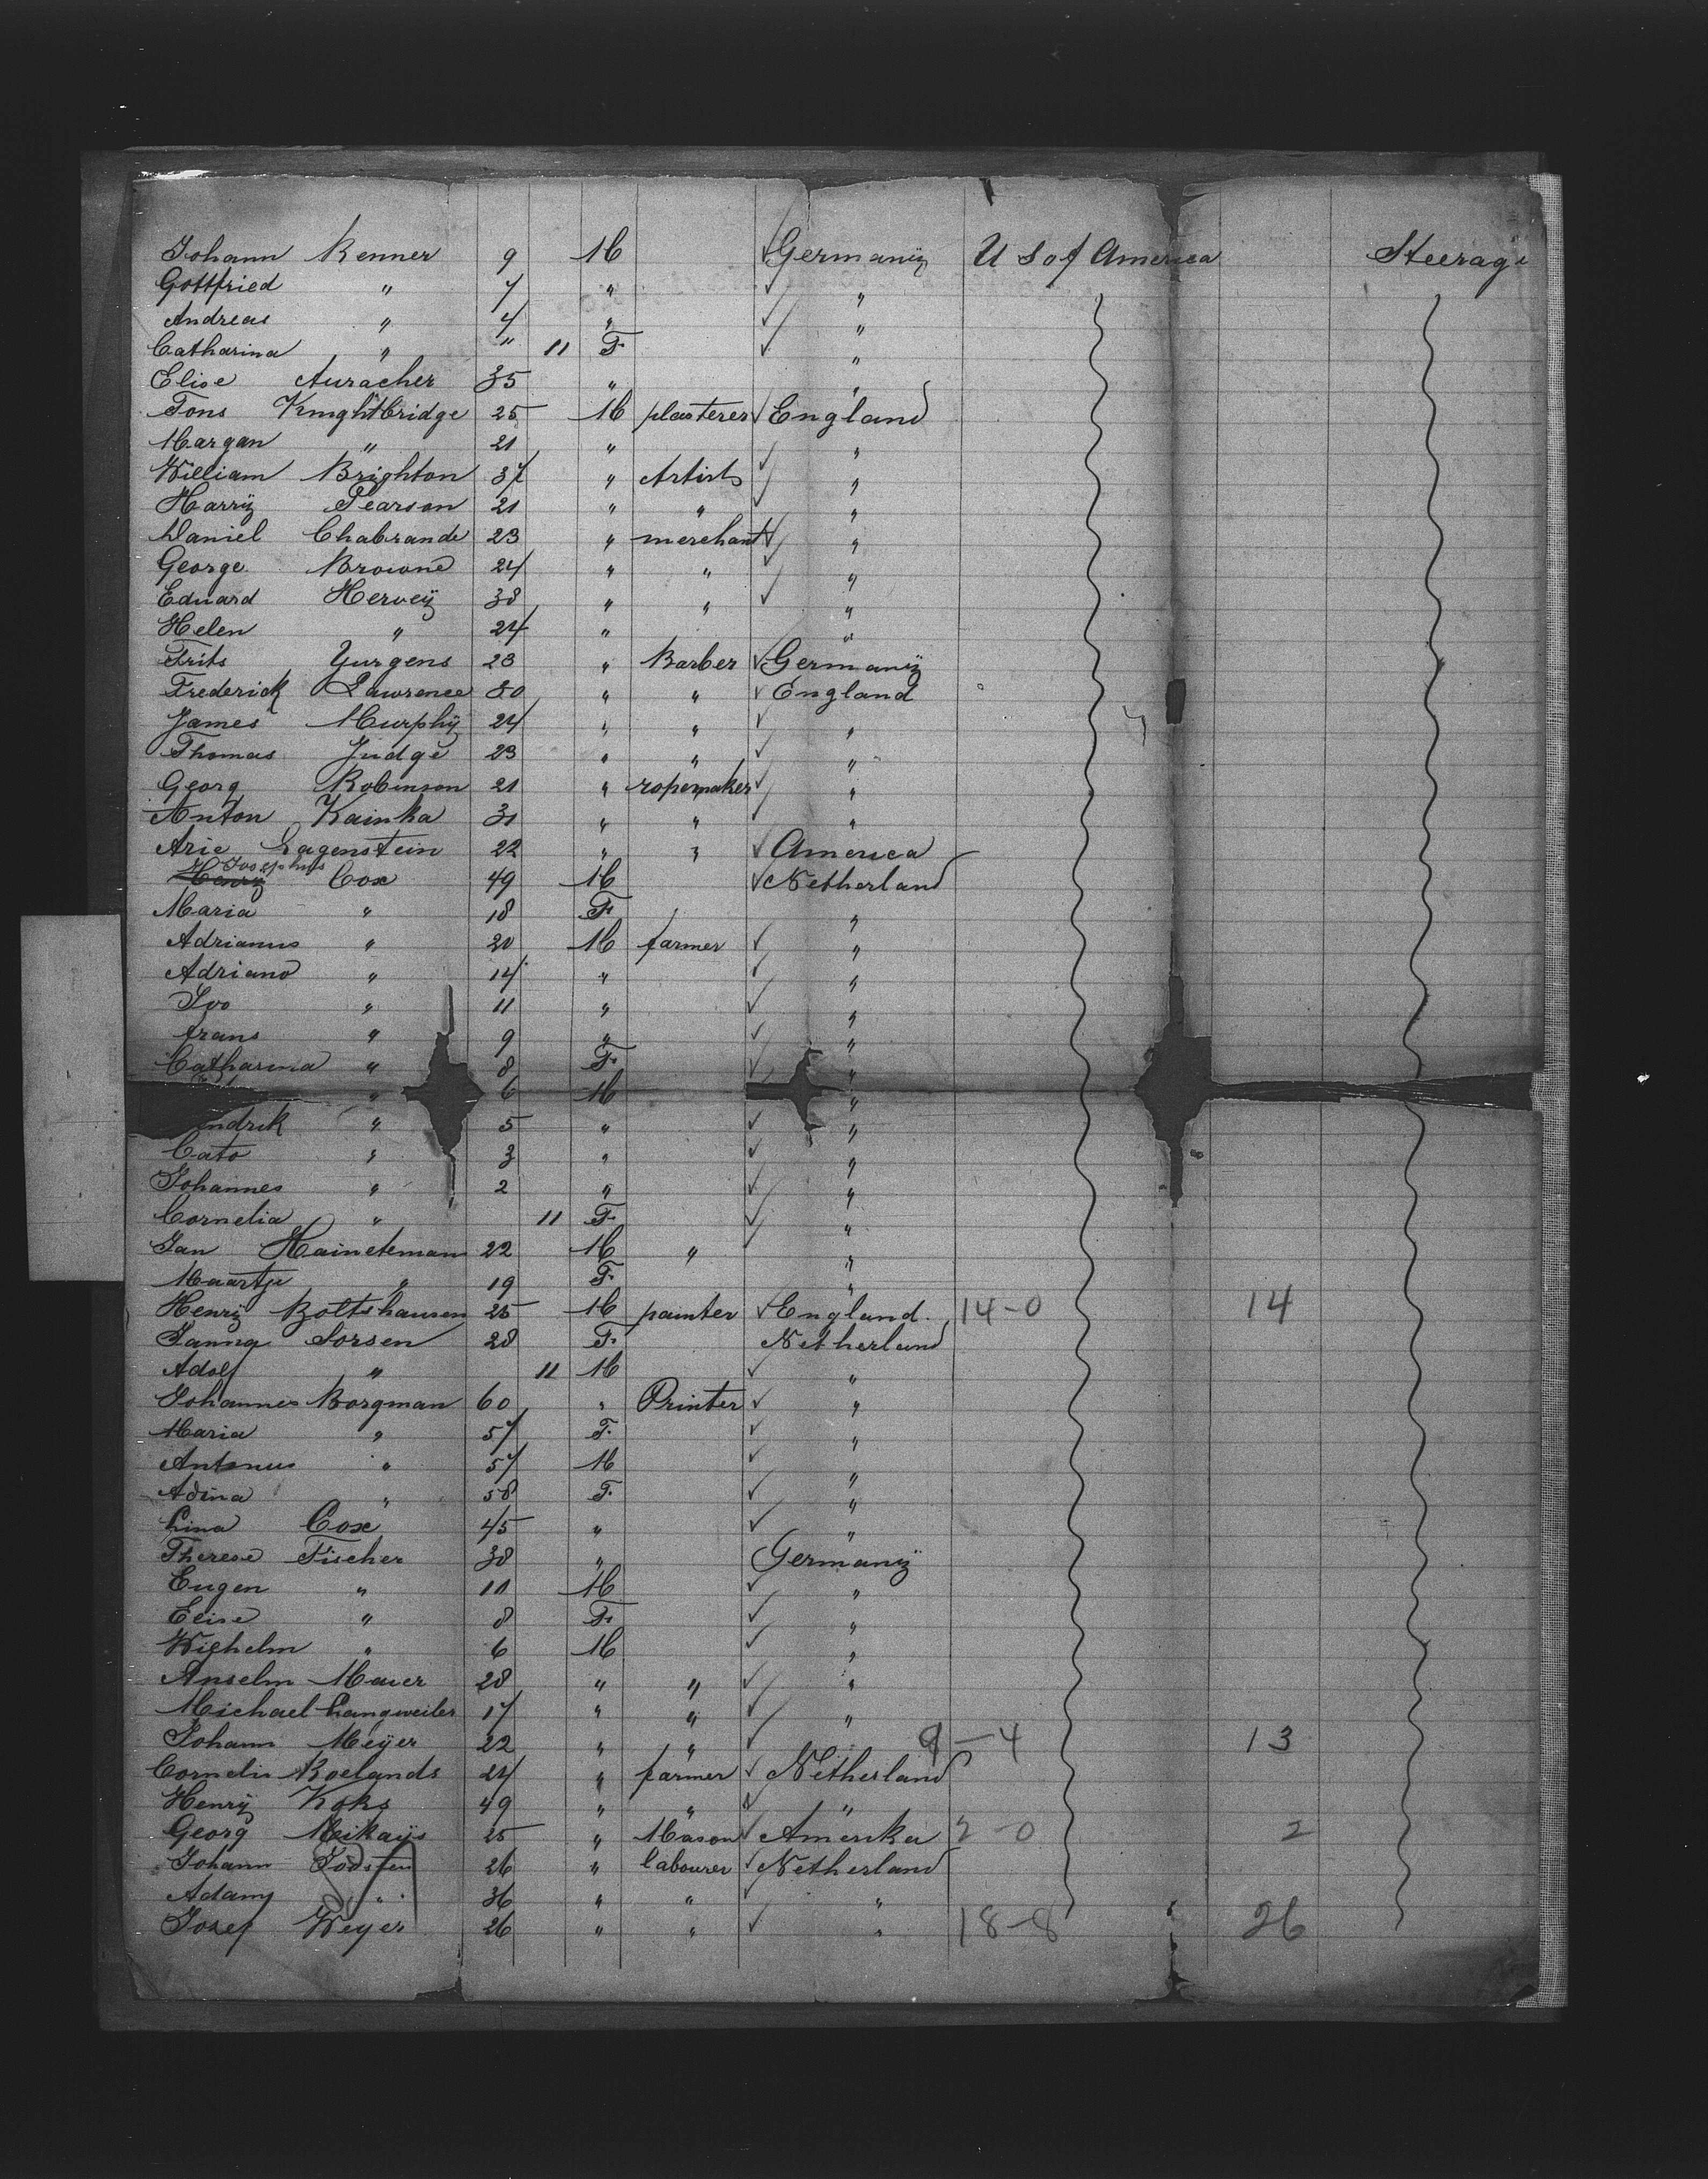 Johann Renner 9 M Germany U S of America Steerage
Gottfried " 7 " "
Andreas " 4 " "
Catharina " " 11 F "
Elise Auracher 35 " "
Tons Knightbridge 25 M plasterer England
Margan " 21 " "
William Brighton 37 " Artist "
Harry Pearson 21 " " "
Daniel Chabrande 23 " merchant "
George Browne 24 " " "
Eduard Hervey 38 " " "
Helen " 24 " "
Frits Yurgens 23 " Barber Germany
Frederick Lawrence 30 " " England
James Murphy 24 " " "
Thomas Judge 23 " " "
Georg Robinson 21 " ropemaker "
Anton Kainka 31 " " "
Arie Lagenstein 22 " " America
Josephus
Henry Cox 49 M Netherland
Maria " 18 F "
Adrianus " 20 M farmer "
Adriano " 14 " "
Ivo " 11 " "
frans " 9 " "
Catharina " 8 F "
" 6 M "
ndrik " 5 " "
Cato " 3 " "
Johannes " 2 " "
Cornelia " 11 F "
Jan Haineteman 22 M " "
Maartje " 19 F "
Henry Boltshausen 25 M painter England 14-0 14
Janna Sorsen 28 F Netherland
Adolf " 11 M "
Johannes Borgman 60 " Printer "
Maria " 57 F "
Antonus " 57 M "
Adina " 58 F "
Lina Cox 45 " "
Therese Fischer 38 " Germany
Eugen " 11 M "
Elise " 8 F "
Wilhelm " 6 M "
Anselm Maier 28 " " "
Michael Langweiler 17 " " "
Johann Meyer 22 " " 9-4 13
Cornelis Roelands 24 " farmer Netherland
Henry Koks 49 " " "
Georg Mikays 25 " Mason Amerika 2-0 2
Johann Joosten 26 " labourer Netherland
Adam " 36 " " "
Josef Weyer 26 " " " 18-8 26